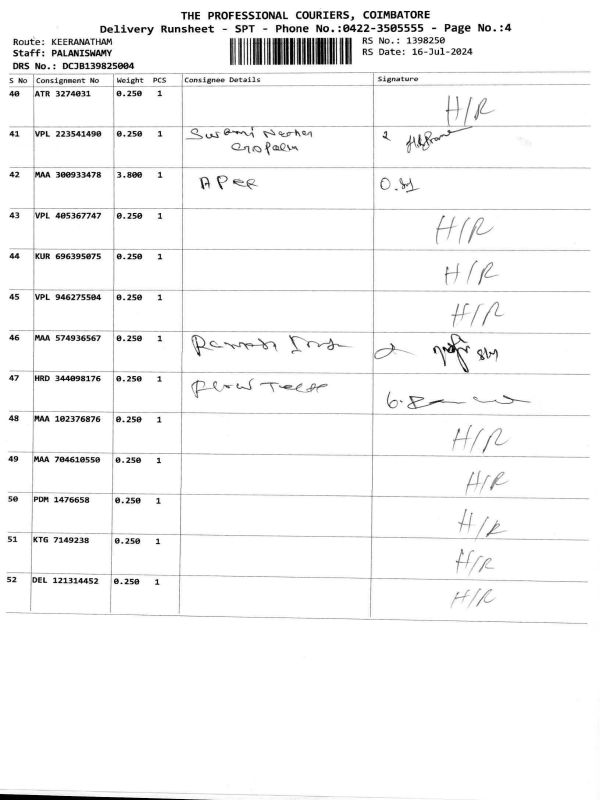 THE PROFESSIONAL COURIERS, COIMBATORE
Delivery Runsheet - SPT - Phone No.:0422-3505555 - Page No.:4
Route: KEERANATHAM
Staff: PALANISWAMY
DRS No.: DCJB139825004
RS No.: 1398250
RS Date: 16-Jul-2024
S No Consignment No Weight PCS Consignee Details Signature
40 ATR 3274031 0.250 1 H/R
41 VPL 223541490 0.250 1
42 MAA 300933478 3.800 1
43 VPL 405367747 0.250 1 H/R
44 KUR 696395075 0.250 1 H/R
45 VPL 946275504 0.250 1 H/R
46 MAA 574936567 0.250 1
47 HRD 344098176 0.250 1
48 MAA 102376876 0.250 1 H/R
49 MAA 704610550 0.250 1 H/R
50 PDM 1476658 0.250 1 H/R
51 KTG 7149238 0.250 1 H/R
52 DEL 121314452 0.250 1 H/R